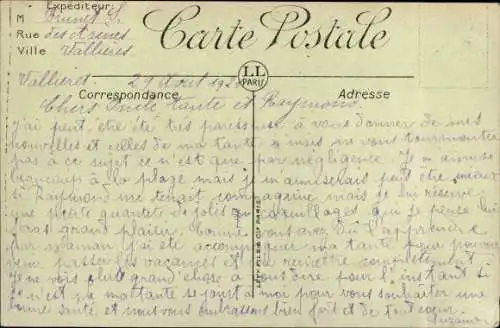 Expéditeur:
M Brunet S.
Rue des Arènes
Ville Vallières
Carte Postale
LL
PARIS
Vallières 29 Août
Correspondance
Adresse
Chers Oncle tante et Raymond.
J'ai peut être été très paresseuse à vous donner de mes
nouvelles et celles de ma tante mais ne vous tourmentez
pas à ce sujet ce n'est que par négligence. Je m'amuse
beaucoup à la plage mais je m'amuserais peut être mieux
si Raymond me tenait compagnie mais je lui réserve
une petite quantité de jolis coquillages qui je pense lui
feras grand plaisir. Comme vous avez dû l'apprendre
par maman j'ai été accompagner ma tante pour pouvoir
venir passer les vacances et me remettre complètement
Je ne vois plus grand chose à vous dire pour l'instant si
ce n'est que ma tante se joint à moi pour vous souhaiter une
bonne santé et nous vous embrassons bien fort et de tout cœur.
Suzanne
LEVY FILS & Cie PARIS